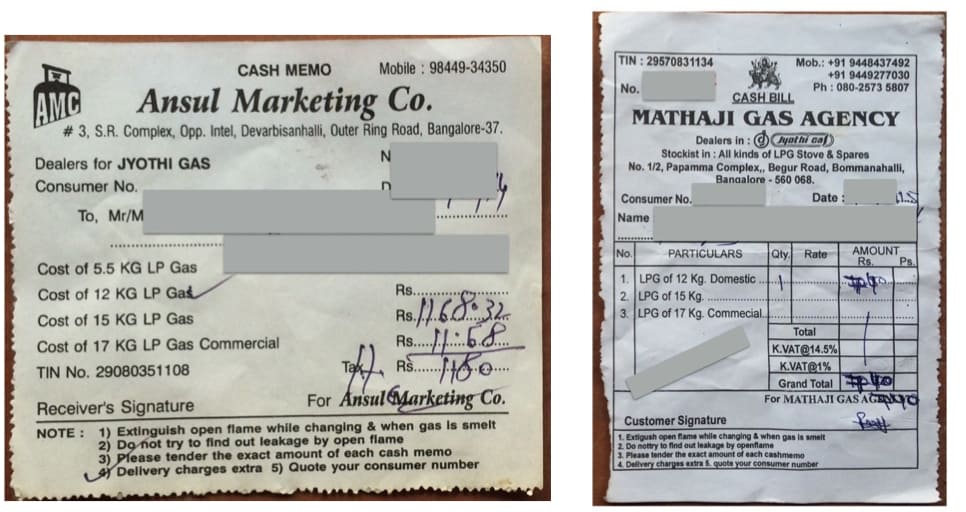 AMC
CASH MEMO Mobile : 98449-34350
Ansul Marketing Co.
# 3, S.R. Complex, Opp. Intel, Devarbisanhalli, Outer Ring Road, Bangalore-37.
Dealers for JYOTHI GAS N
Consumer No. D
To, Mr/M
Cost of 5.5 KG LP Gas
Cost of 12 KG LP Gas Rs.
Cost of 15 KG LP Gas Rs. 1168.32
Cost of 17 KG LP Gas Commercial Rs. 11.68
TIN No. 29080351108 Tax Rs. 1180
Receiver's Signature For Ansul Marketing Co.
NOTE : 1) Extinguish open flame while changing & when gas is smelt
2) Do not try to find out leakage by open flame
3) Please tender the exact amount of each cash memo
4) Delivery charges extra 5) Quote your consumer number
TIN : 29570831134 Mob.: +91 9448437492
+91 9449277030
No. Ph : 080-2573 5807
CASH BILL
MATHAJI GAS AGENCY
Dealers in : Jyothi Gas
Stockist in : All kinds of LPG Stove & Spares
No. 1/2, Papamma Complex,, Begur Road, Bommanahalli,
Bangalore - 560 068.
Consumer No. Date :
Name
No. PARTICULARS Qty. Rate AMOUNT
Rs. Ps.
1. LPG of 12 Kg. Domestic 1
2. LPG of 15 Kg.
3. LPG of 17 Kg. Commecial
Total
K.VAT@14.5%
K.VAT@1%
Grand Total
For MATHAJI GAS
Customer Signature
1. Extigush open flame while changing & when gas is smelt
2. Do nottry to find out leakage by openflame
3. Please tender the exact amount of each cashmemo
4. Delivery charges extra 5. quote your consumer number